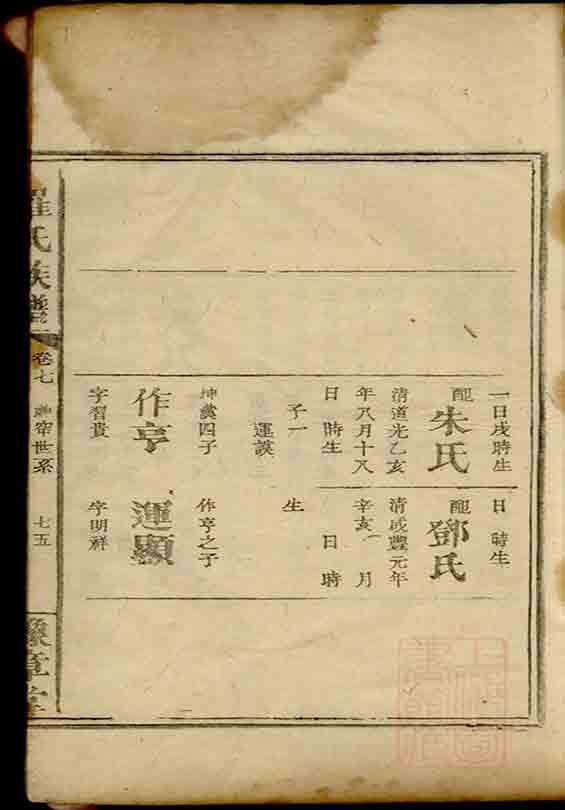 一日戌時生
配朱氏
清道光乙亥
年八月十八
日 時生
子一
運謨
四子
作亨
字習貴
日 時生
配鄧氏
清咸豐元年
辛亥 月
日 時
生
作亨之子
運顯
字明祥
羅氏族譜
卷七
宰世系
七五
豫章堂